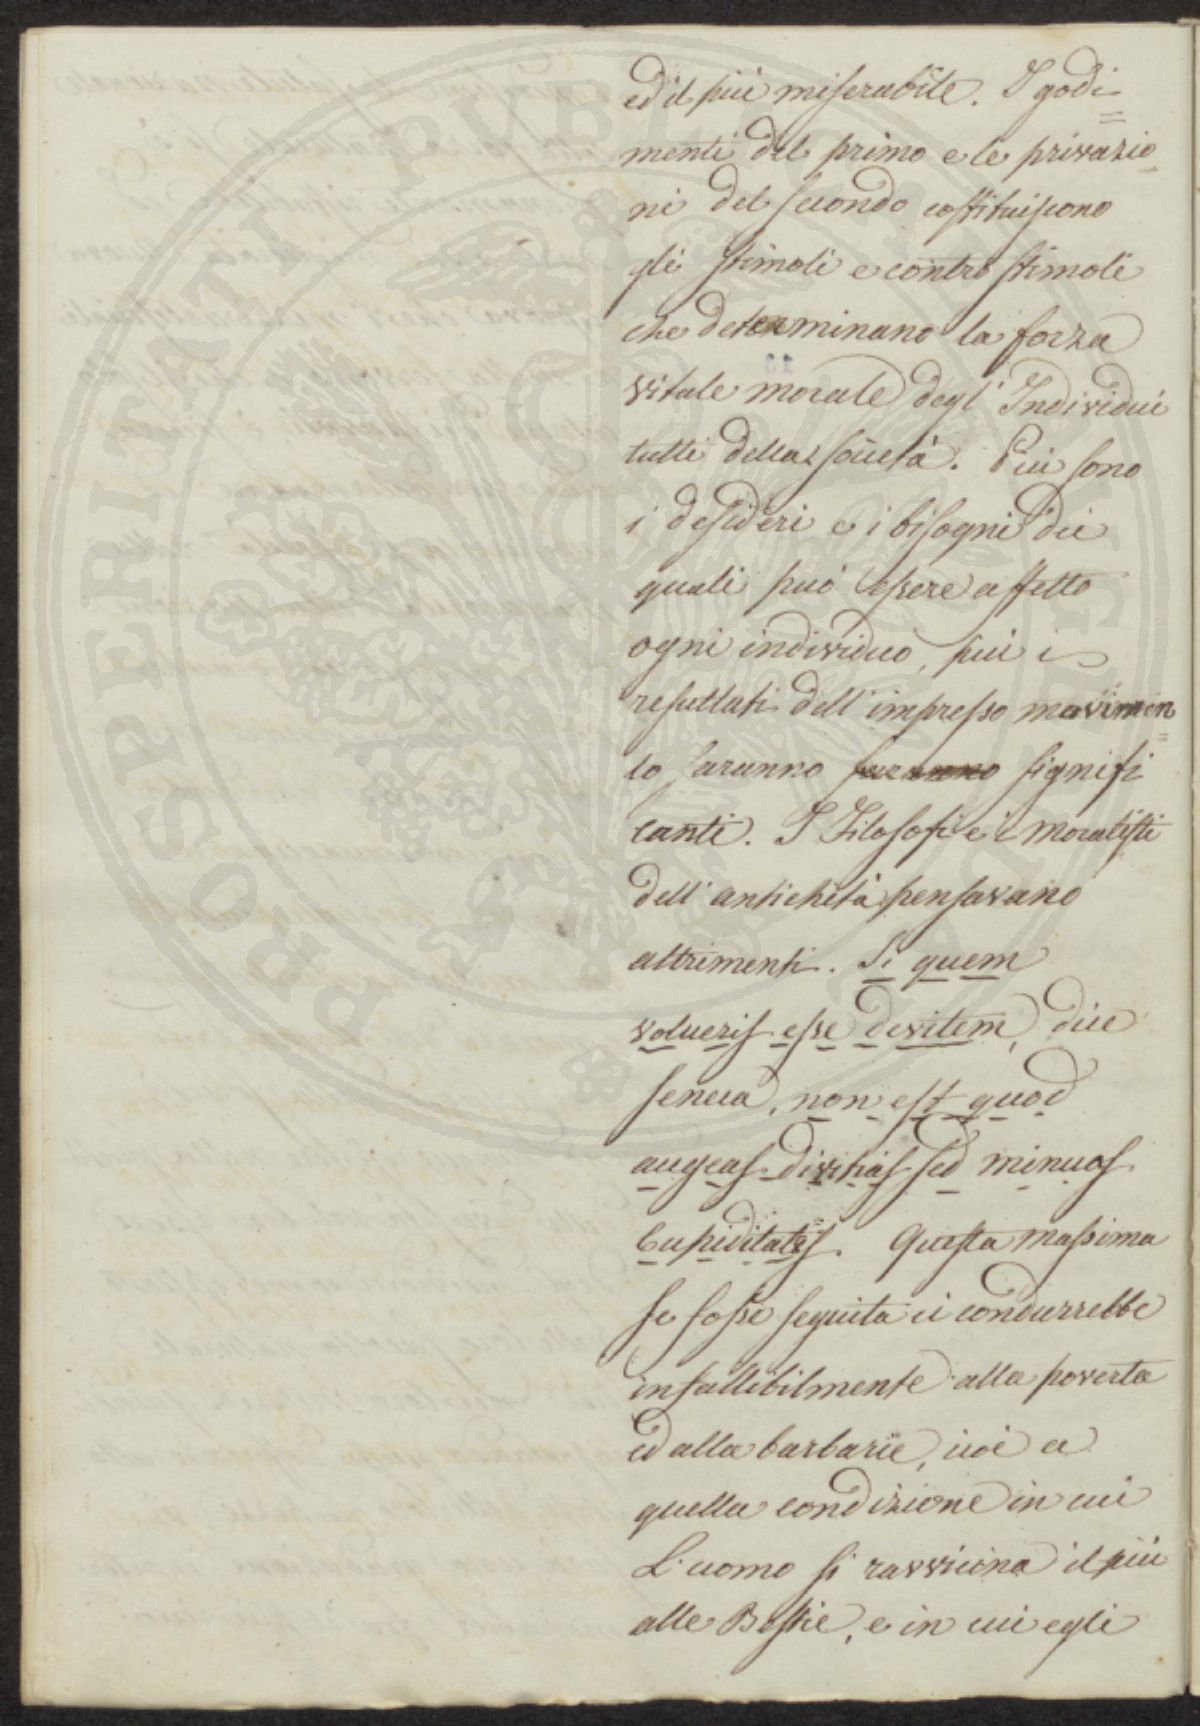 ed il più miserabile. I godi=
menti del primo e le privazio-
ni del secondo costituiscono
gli stimoli e contro stimoli
che determinano la forza
vitale morale degl' Individui
tutti della società. Più sono
i desideri e i bisogni dei
quali può essere affetto
ogni individuo, più i
resultati dell' impresso movimen=
to saranno saranno signifi
canti. I Filosofi e i moralisti
dell' antichità pensavano
altrimenti. Si quem
volueris esse devitem, dice
seneca, non est quod
augeas divitias sed minuas
Cupiditates. Questa massima
se fosse seguita ci condurrebbe
infallibilmente alla poverta
ed alla barbarie, cioè a
quella condizione in cui
L' uomo si ravvicina il più
alle Bestie, e in cui egli
PROSPERITATI PVBLICAE